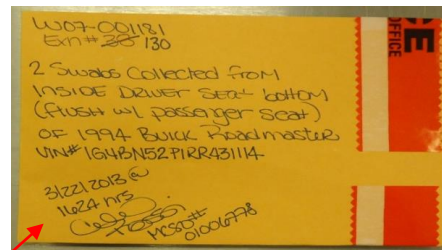 W07-001181
Exn# 38 130
2 Swabs Collected from
INSIDE DRIVER SEAT bottom
(flush w/ passenger seat)
OF 1994 Buick Roadmaster
VIN# 1G4BN52P1RR431114
3/22/2013 @
1624 hrs
MCSO#
01006778
CE
OFFICE